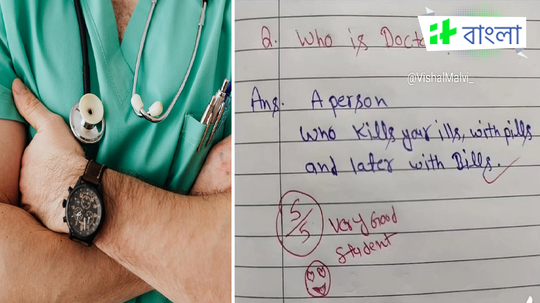 বাংলা
2. Who is Doct
@VishalMalvi_
Ans. A person
who kills your ills, with pills
and later with Bills.
5/5
Very Good
Student